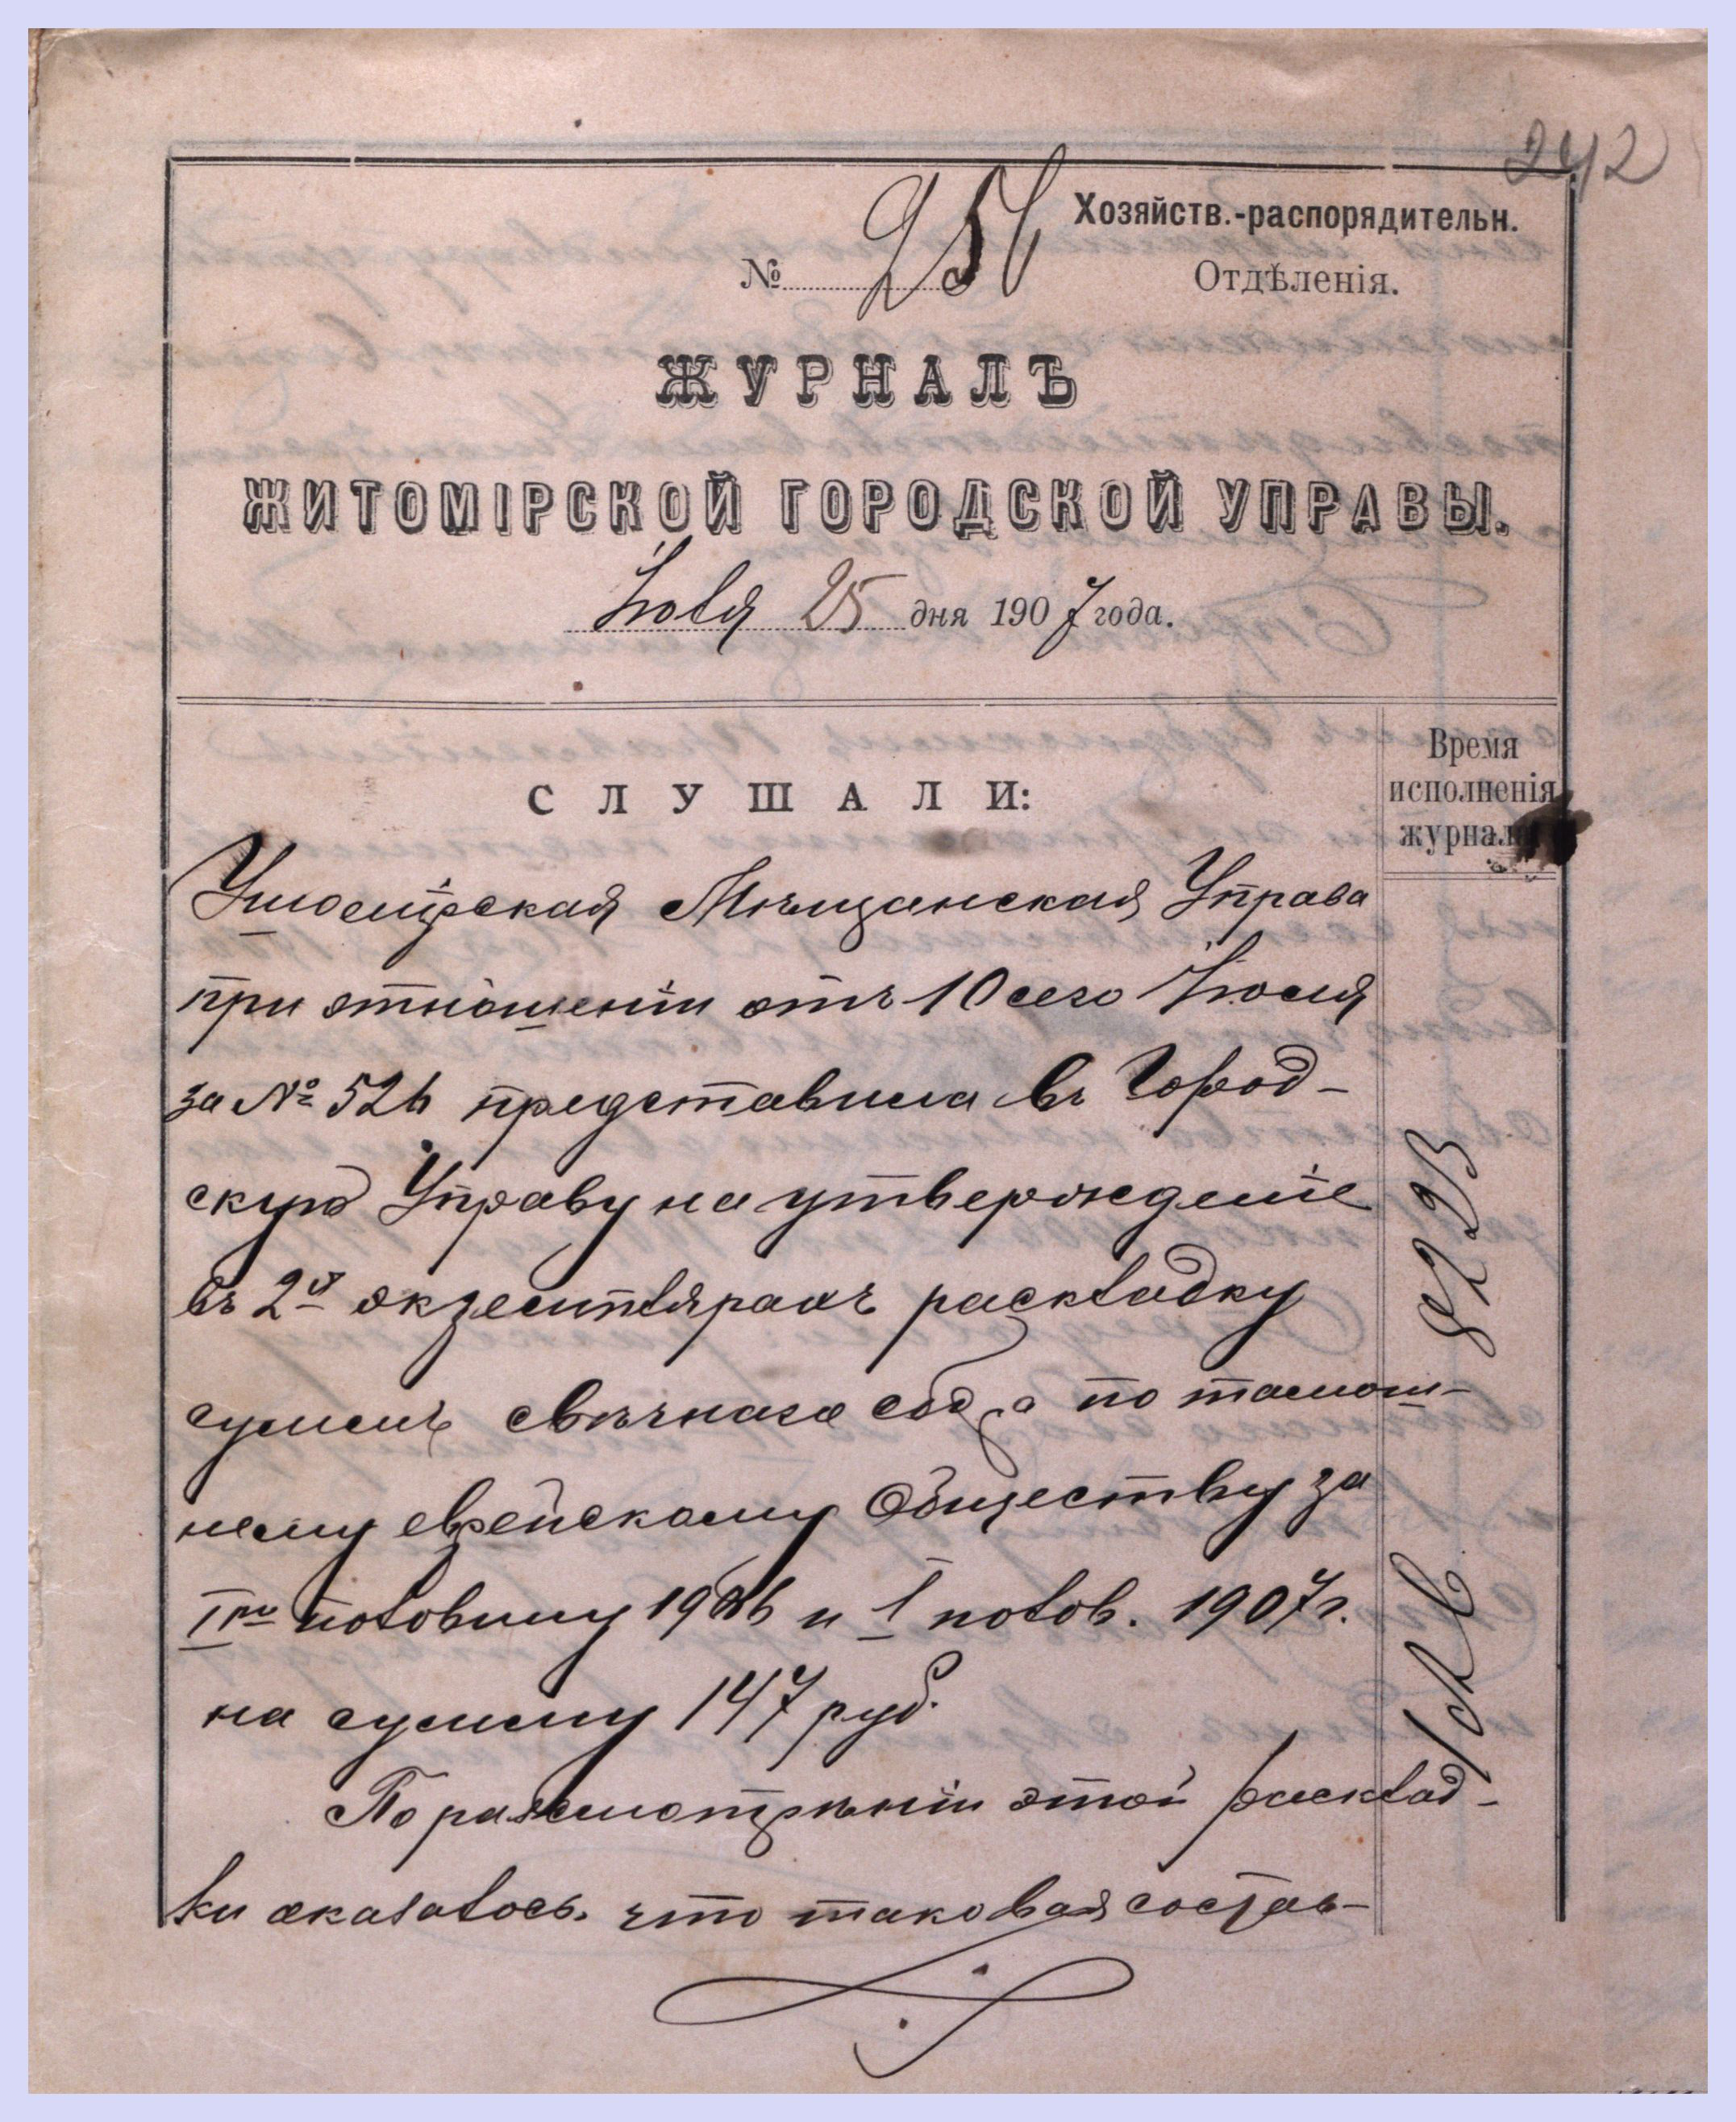 242
Хозяйств.-распорядительн.
№ 256
Отдѣленія.
ЖУРНАЛЪ
ЖИТОМІРСКОЙ ГОРОДСКОЙ УПРАВЫ.
Іюля 25 дня 1907 года.
Время
исполненія
журнала
СЛУШАЛИ:
Ушомірская Мѣщанская Управа
при отношеніи отъ 10 сего Іюля
за № 526 представила въ Город-
скую Управу на утвержденіе
въ 2х экземплярахъ раскладку
суммъ свѣчнаго сбора по тамош-
нему еврейскому Обществу за
половину 1906 и 1 полов. 1907 г.
на сумму 147 руб.
По разсмотрѣніи этой расклад-
ки оказалось, что таковая состав-